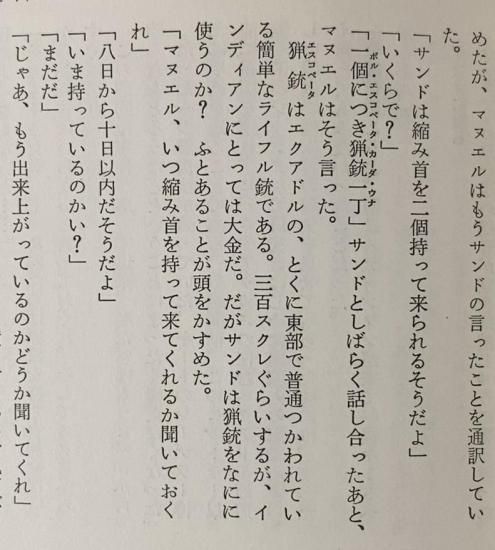 めたが、マヌエルはもうサンドの言ったことを通訳してい
た。
「サンドは縮み首を二個持って来られるそうだよ」
「いくらで？」
ポル・エスコペータ・カーダ・ウナ
「一個につき猟銃一丁」サンドとしばらく話し合ったあと、
マヌエルはそう言った。
エスコペータ
　猟銃はエクアドルの、とくに東部で普通つかわれてい
る簡単なライフル銃である。三百スクレぐらいするが、イ
ンディアンにとっては大金だ。だがサンドは猟銃をなにに
使うのか？　ふとあることが頭をかすめた。
「マヌエル、いつ縮み首を持って来てくれるか聞いておく
れ」
「八日から十日以内だそうだよ」
「いま持っているのかい？」
「まだだ」
「じゃあ、もう出来上がっているのかどうか聞いてくれ」